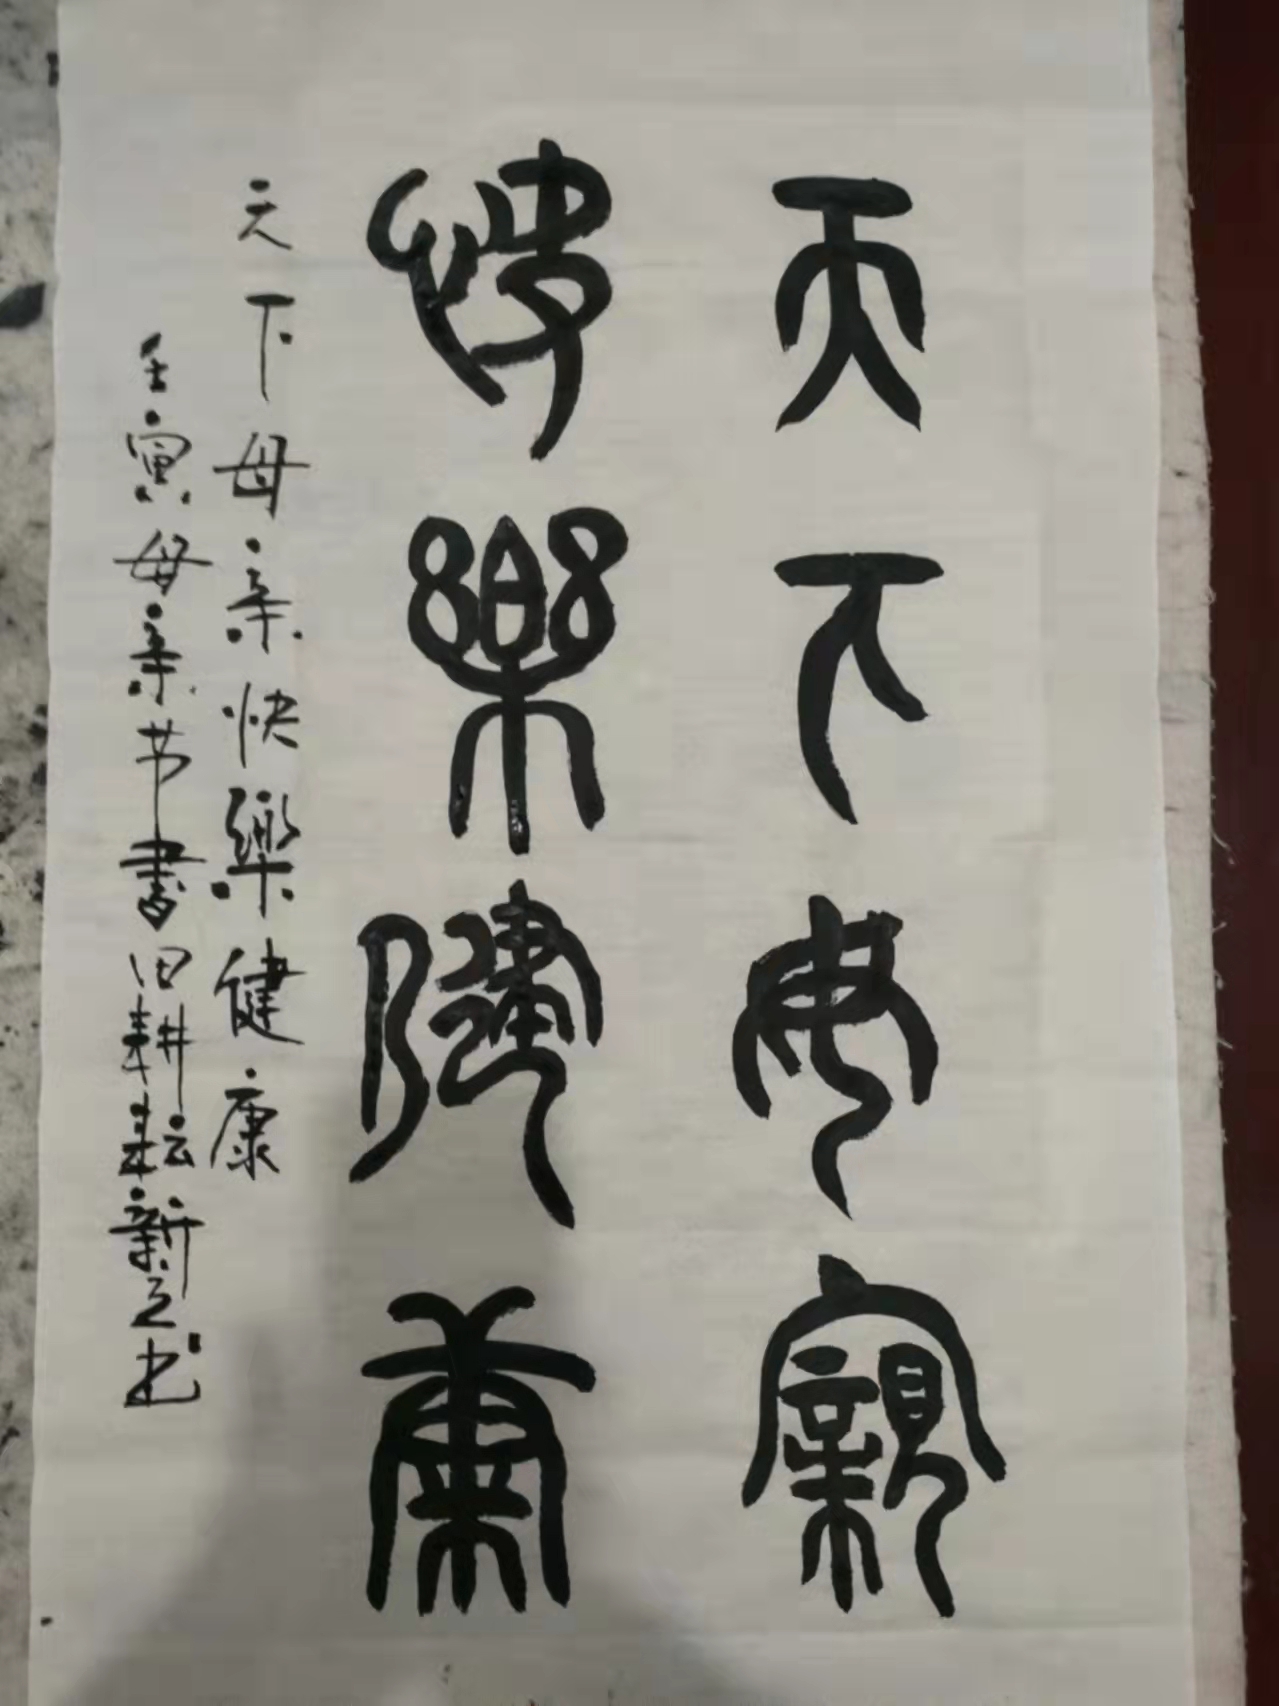 天下母親
快樂健康
天下母亲快樂健康
壬寅母亲节書田耕耘新之书